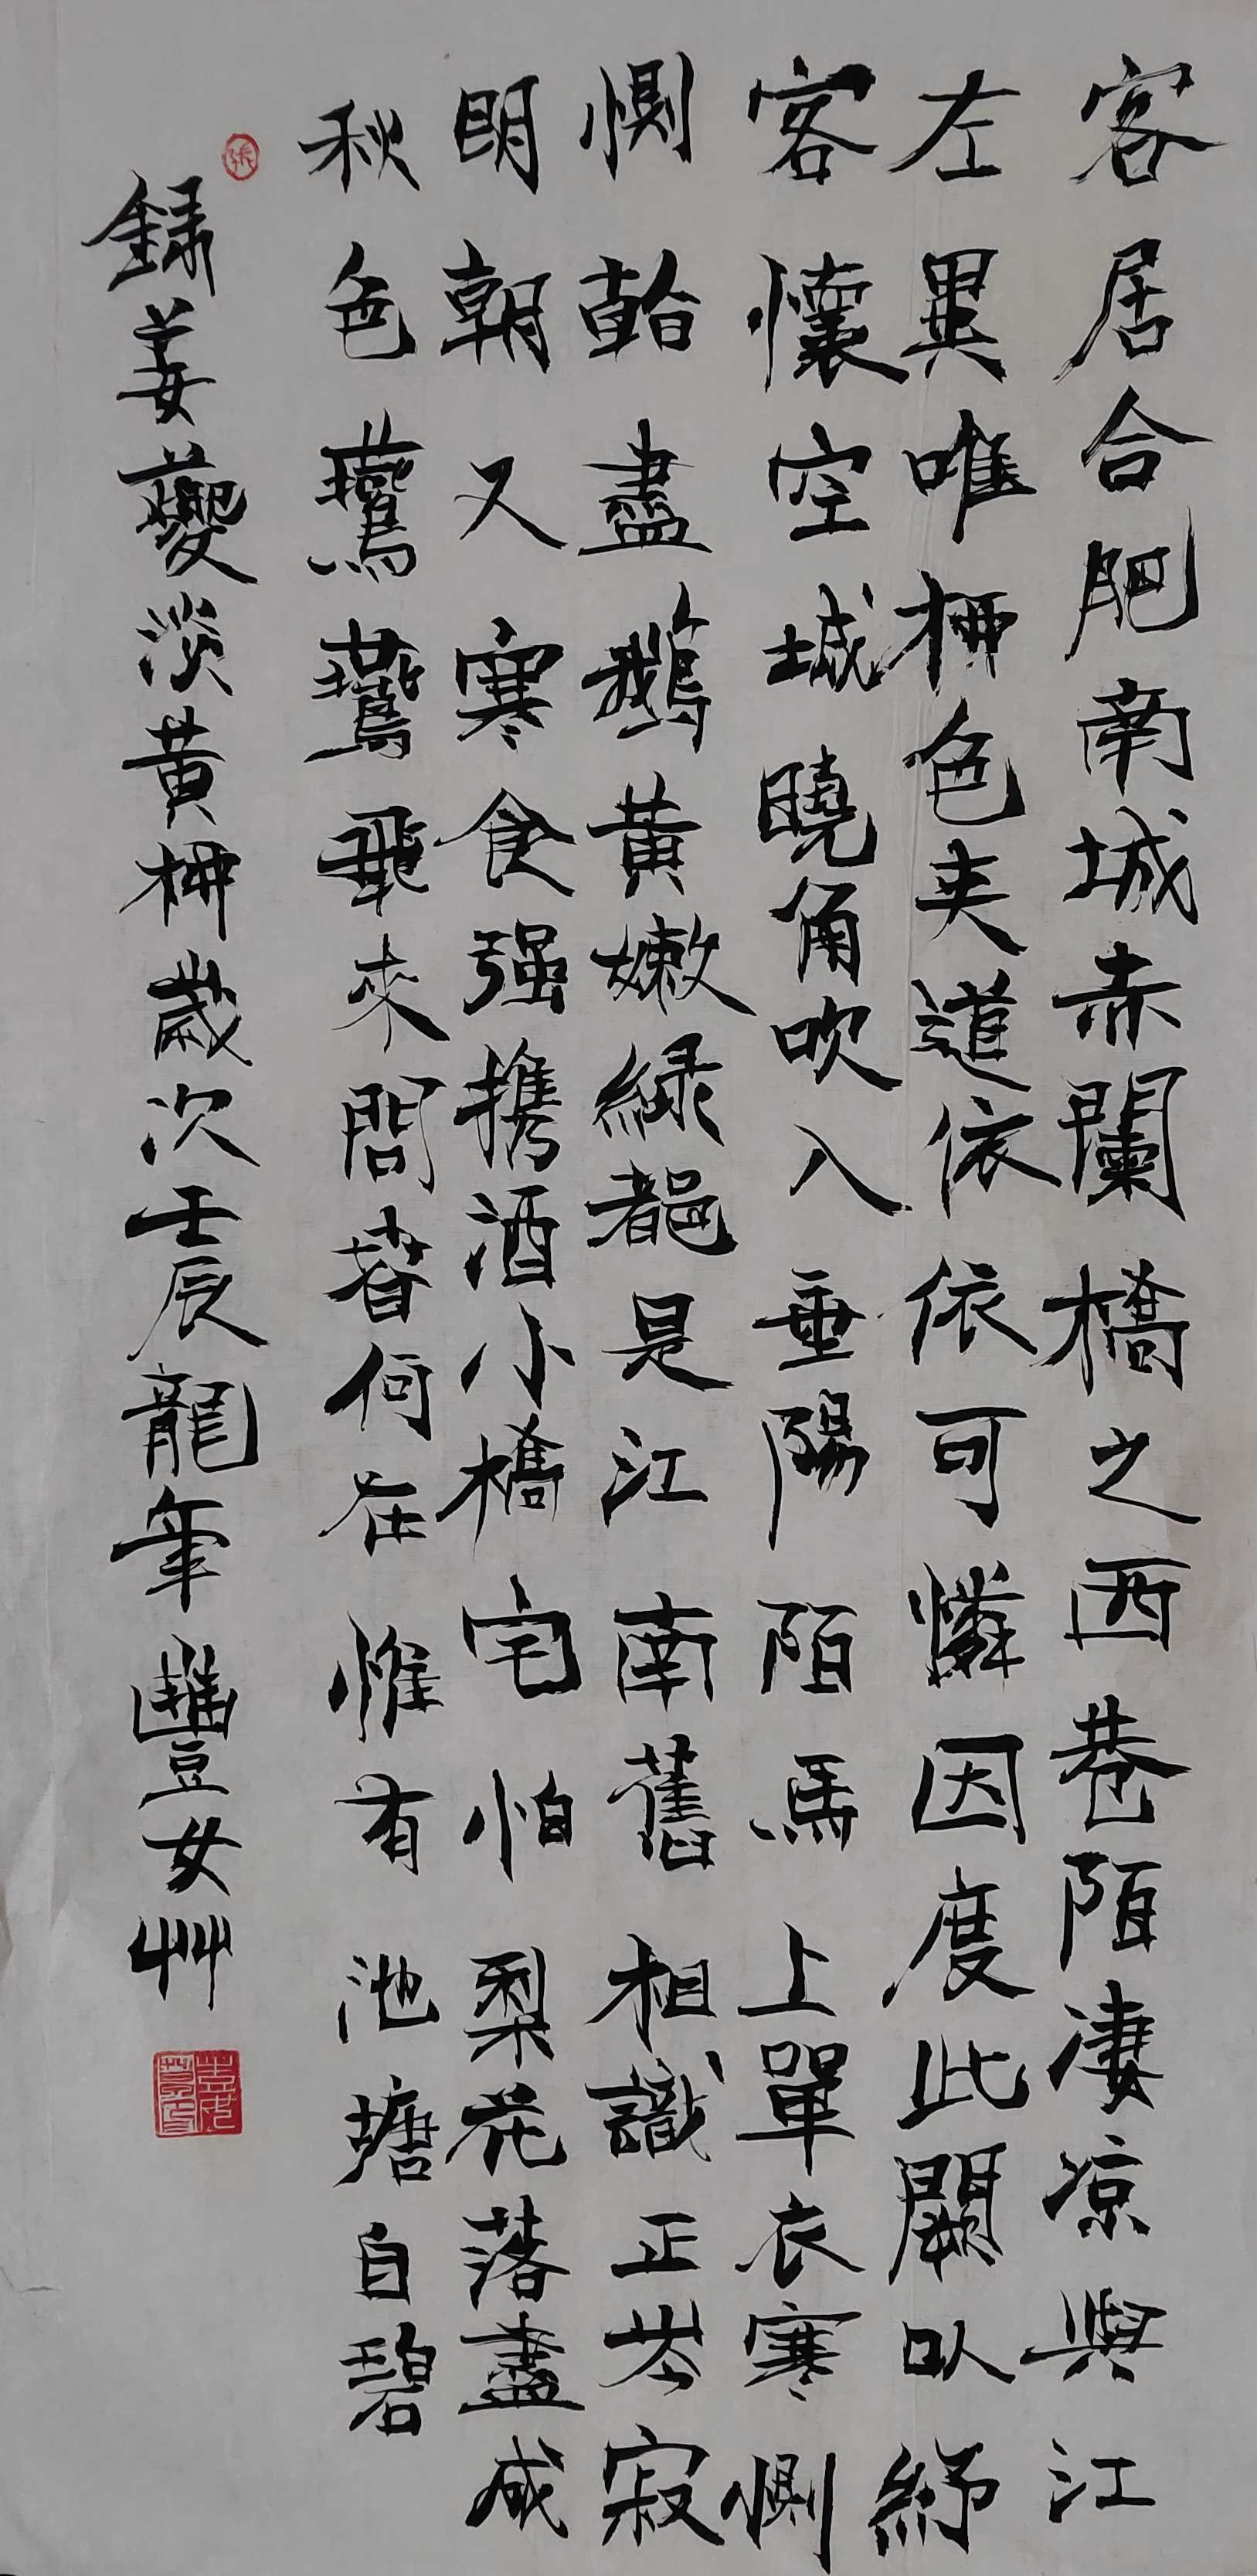 客居合肥南城赤闌橋之西巷陌凄凉與江
左異唯柳色夾道依依可憐因度此闋以紓
客懷空城曉角吹入垂陽陌馬上單衣寒惻
惻看盡鵝黃嫩綠都是江南舊相識正岑寂
明朝又寒食强携酒小橋宅怕梨花落盡成
秋色燕燕飛來問春何在惟有池塘自碧
録姜夔淡黃柳歲次壬辰龍年豐女艸
張